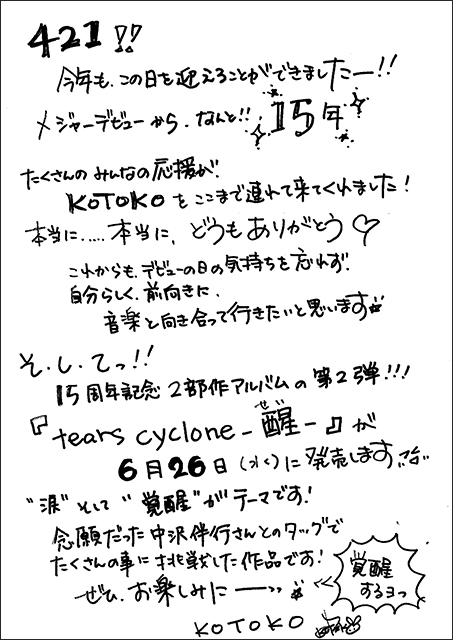 421!!
今年も、この日を迎えることができましたー!!
メジャーデビューから、なんと!! 15年
たくさんのみんなの応援が、
KOTOKOをここまで連れて来てくれました!
本当に.....本当に、どうもありがとう♡
これからも、デビューの日の気持ちを忘れず、
自分らしく、前向きに、
音楽と向き合って行きたいと思います
そ.し.てっ!!
15周年記念 2部作アルバムの第2弾!!!
ぜい
『tears cyclone -醒- 』が
6月26日(水)に発売します
"涙"そして"覚醒"がテーマです!
念願だった中沢伴行さんとのタッグで
たくさんの事に挑戦した作品です!
ぜひ、お楽しみにー
覚醒
するヨっ
KOTOKO